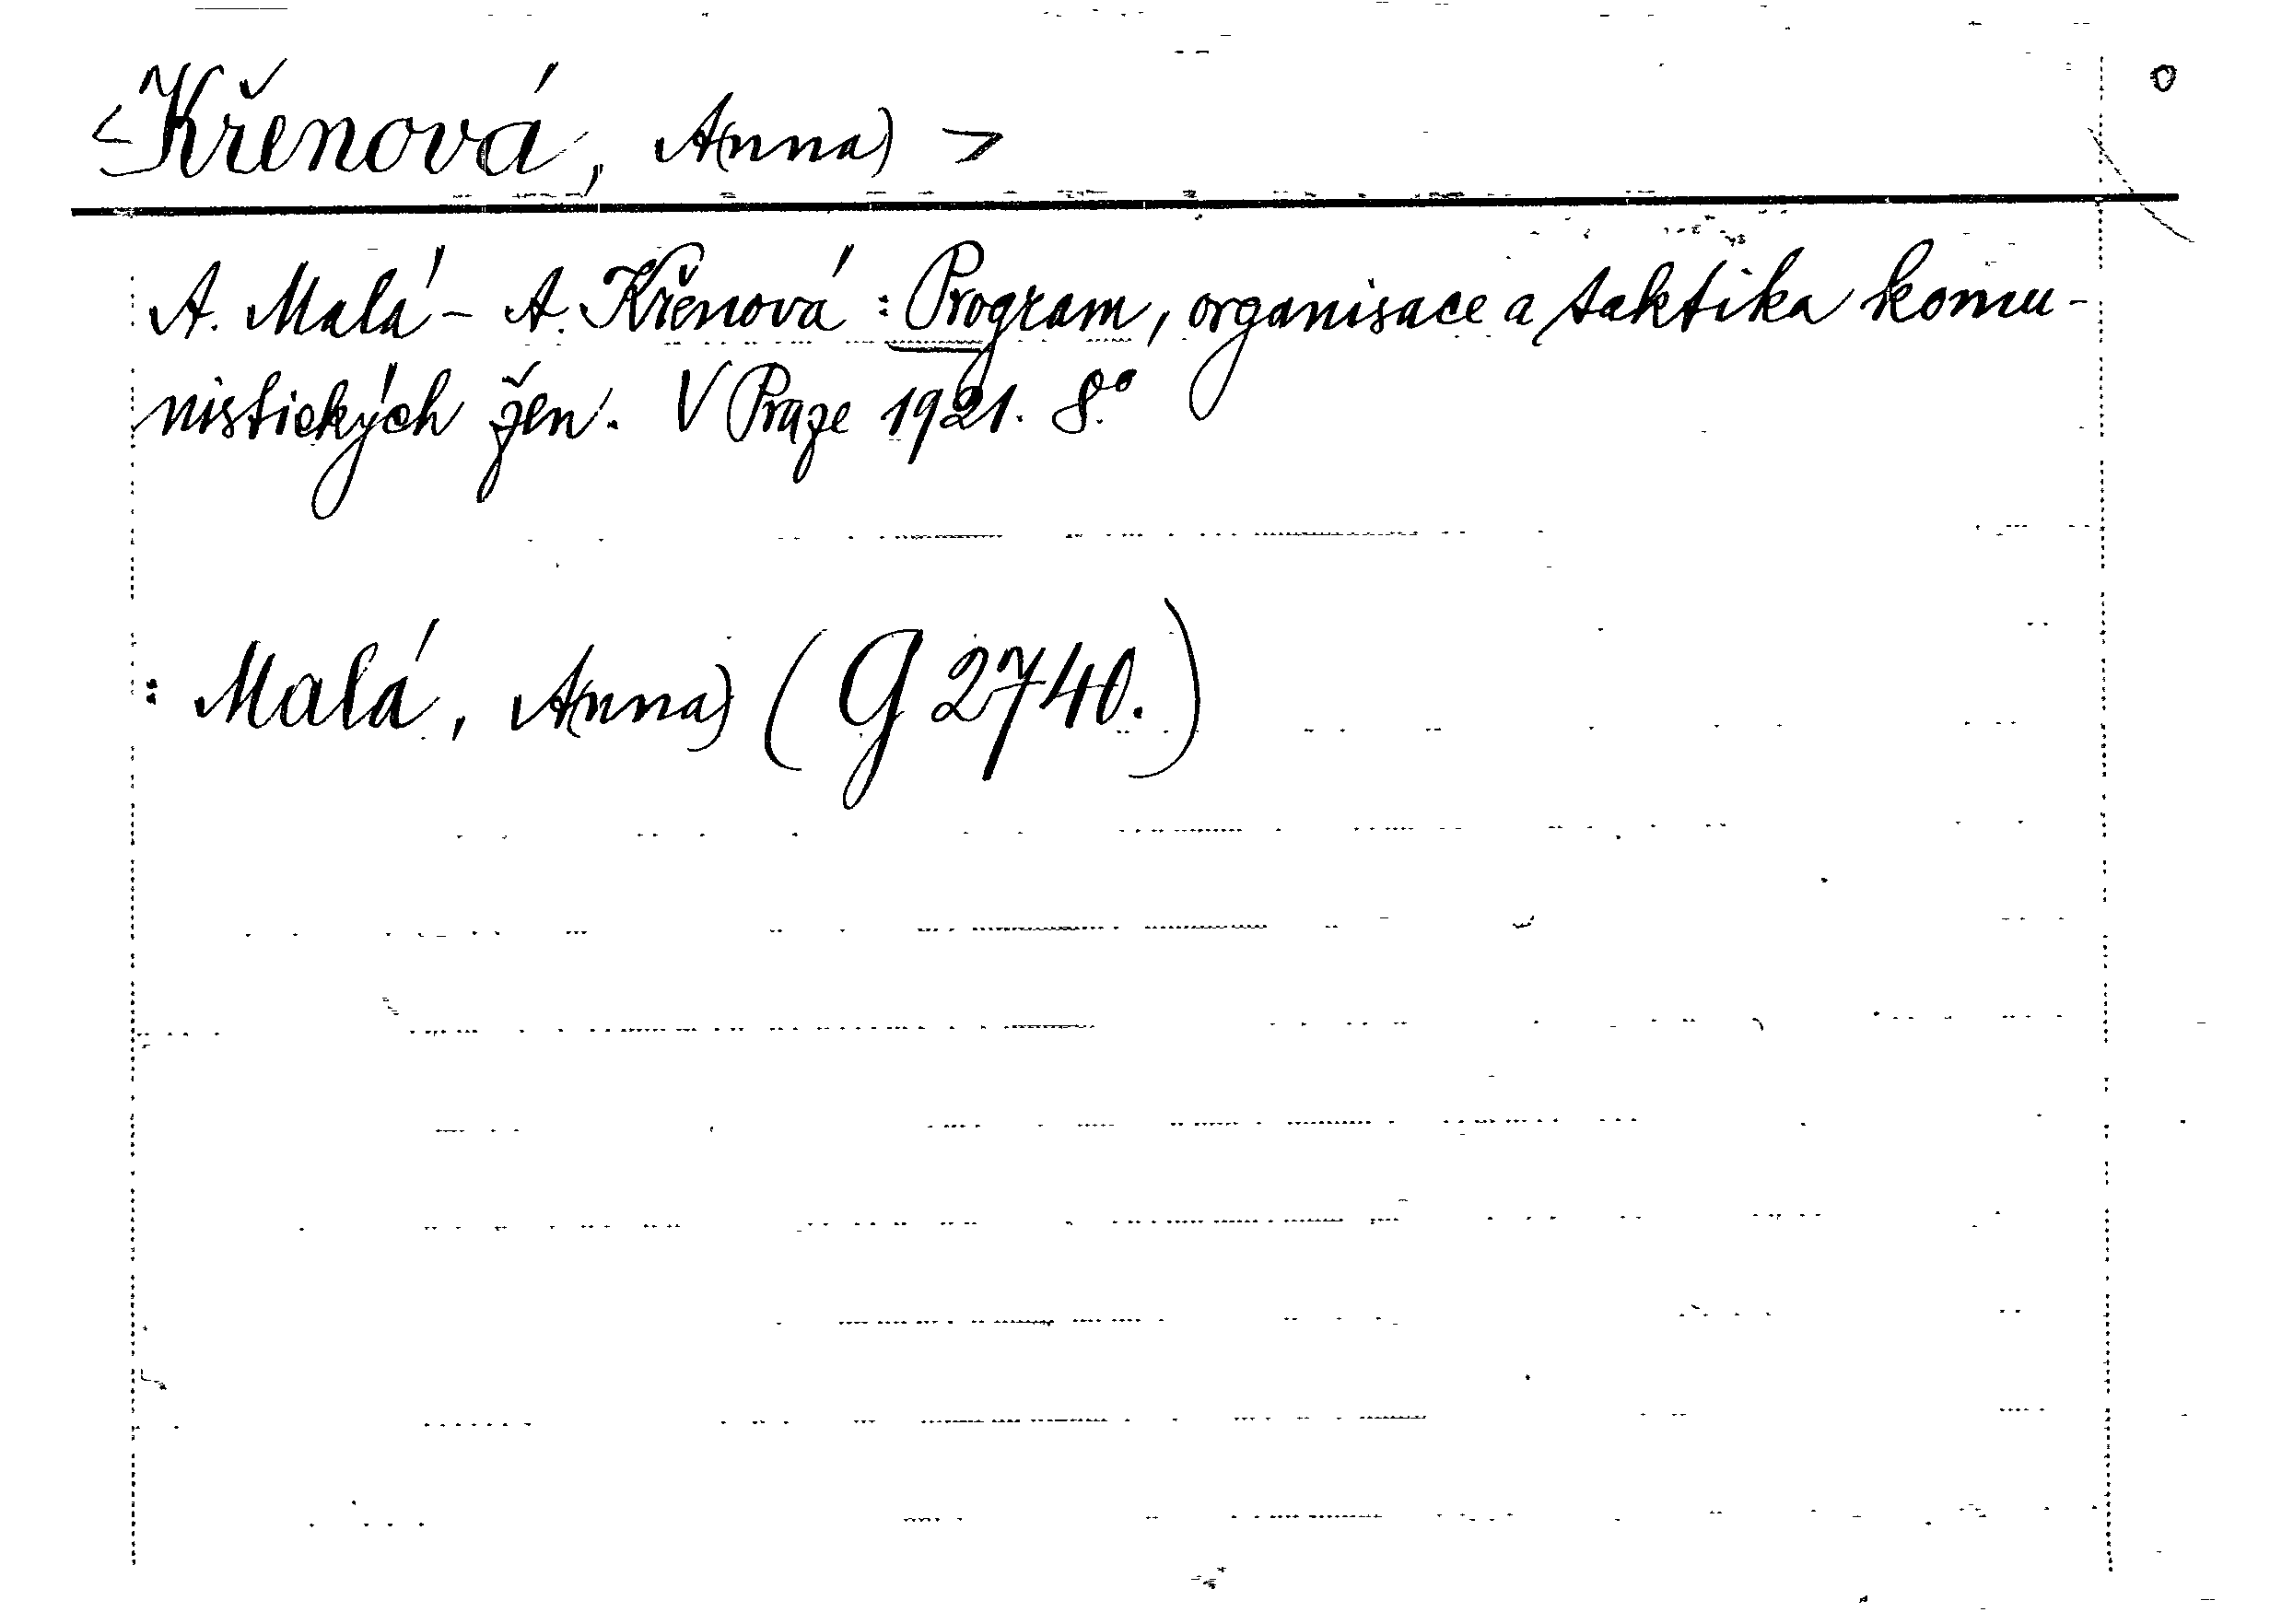 <Křenová, A(nna)> o
A. Malá - A. Křenová: Program, organisace a taktika komu-
nistických žen. V Praze 1921. 8.°
: Malá, A(nna) (G 2740.)